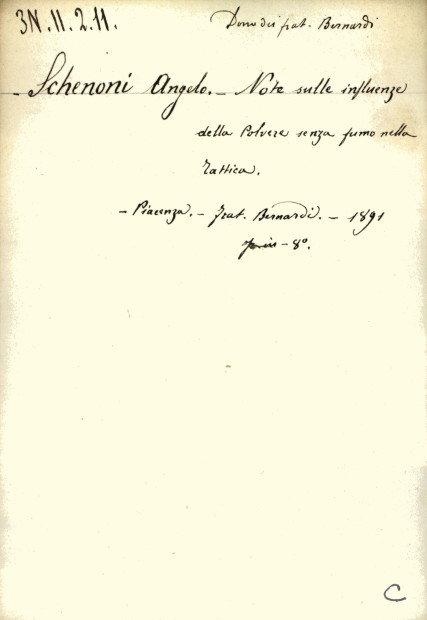 3N.11.2.11.
Dono dei frat. Bernardi
- Schenoni Angelo. - Note sulle influenze
della Polvere senza fumo nella
Tattica.
- Piacenza. - Frat. Bernardi. - 1891
in - 8º.
C